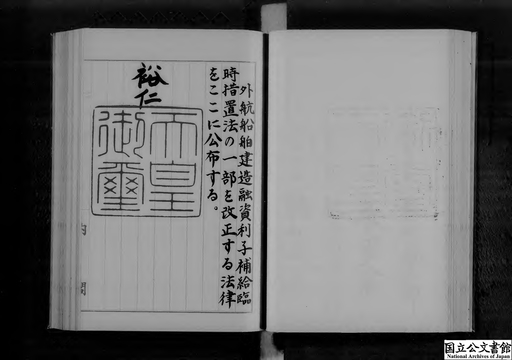 外航船舶建造融資利子補給臨
時措置法の一部を改正する法律
をここに公布する。
裕仁
天皇
御璽
内
閣
国立公文書館
National Archives of Japan